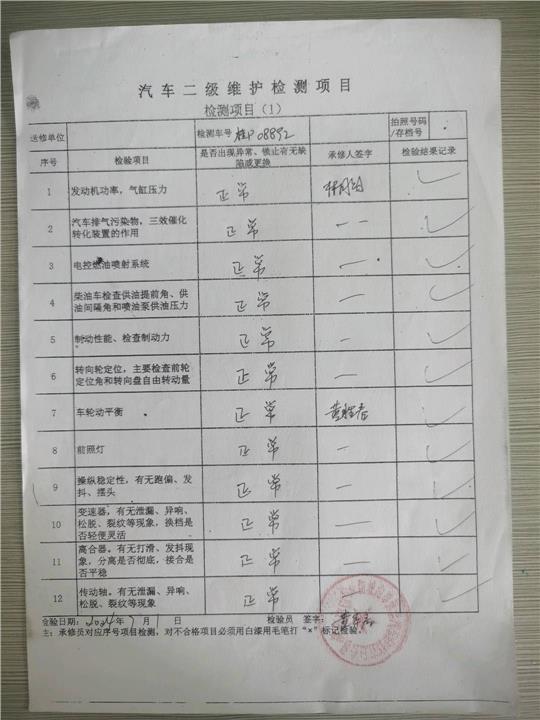 汽车二级维护检测项目
检测项目（1）
送修单位 检测车号 桂P08892 拍照号码/存档号
序号 检验项目 是否出现异常、锁止有无缺陷或更换 承修人签字 检验结果记录
1 发动机功率，气缸压力 正常 ✓
2 汽车排气污染物，三效催化转化装置的作用 正常 一一 ✓
3 电控燃油喷射系统 正常 一 ✓
4 柴油车检查供油提前角、供油间隔角和喷油泵供油压力 正常 一 ✓
5 制动性能、检查制动力 正常 一 ✓
6 转向轮定位，主要检查前轮定位角和转向盘自由转动量 正常 一 ✓
7 车轮动平衡 正常 ✓
8 前照灯 正常 一 ✓
9 操纵稳定性，有无跑偏、发抖、摆头 正常 一 ✓
10 变速器，有无泄漏、异响、松脱、裂纹等现象，换档是否轻便灵活 正常 一 ✓
11 离合器。有无打滑、发抖现象，分离是否彻底，接合是否平稳 正常 一 ✓
12 传动轴。有无泄漏、异响、松脱、裂纹等现象 正常 一 ✓
检验日期：2024年7月1日 检验员 签字：
主：承修员对应序号项目检测，对不合格项目必须用白漆用毛笔打“×”标记检验。